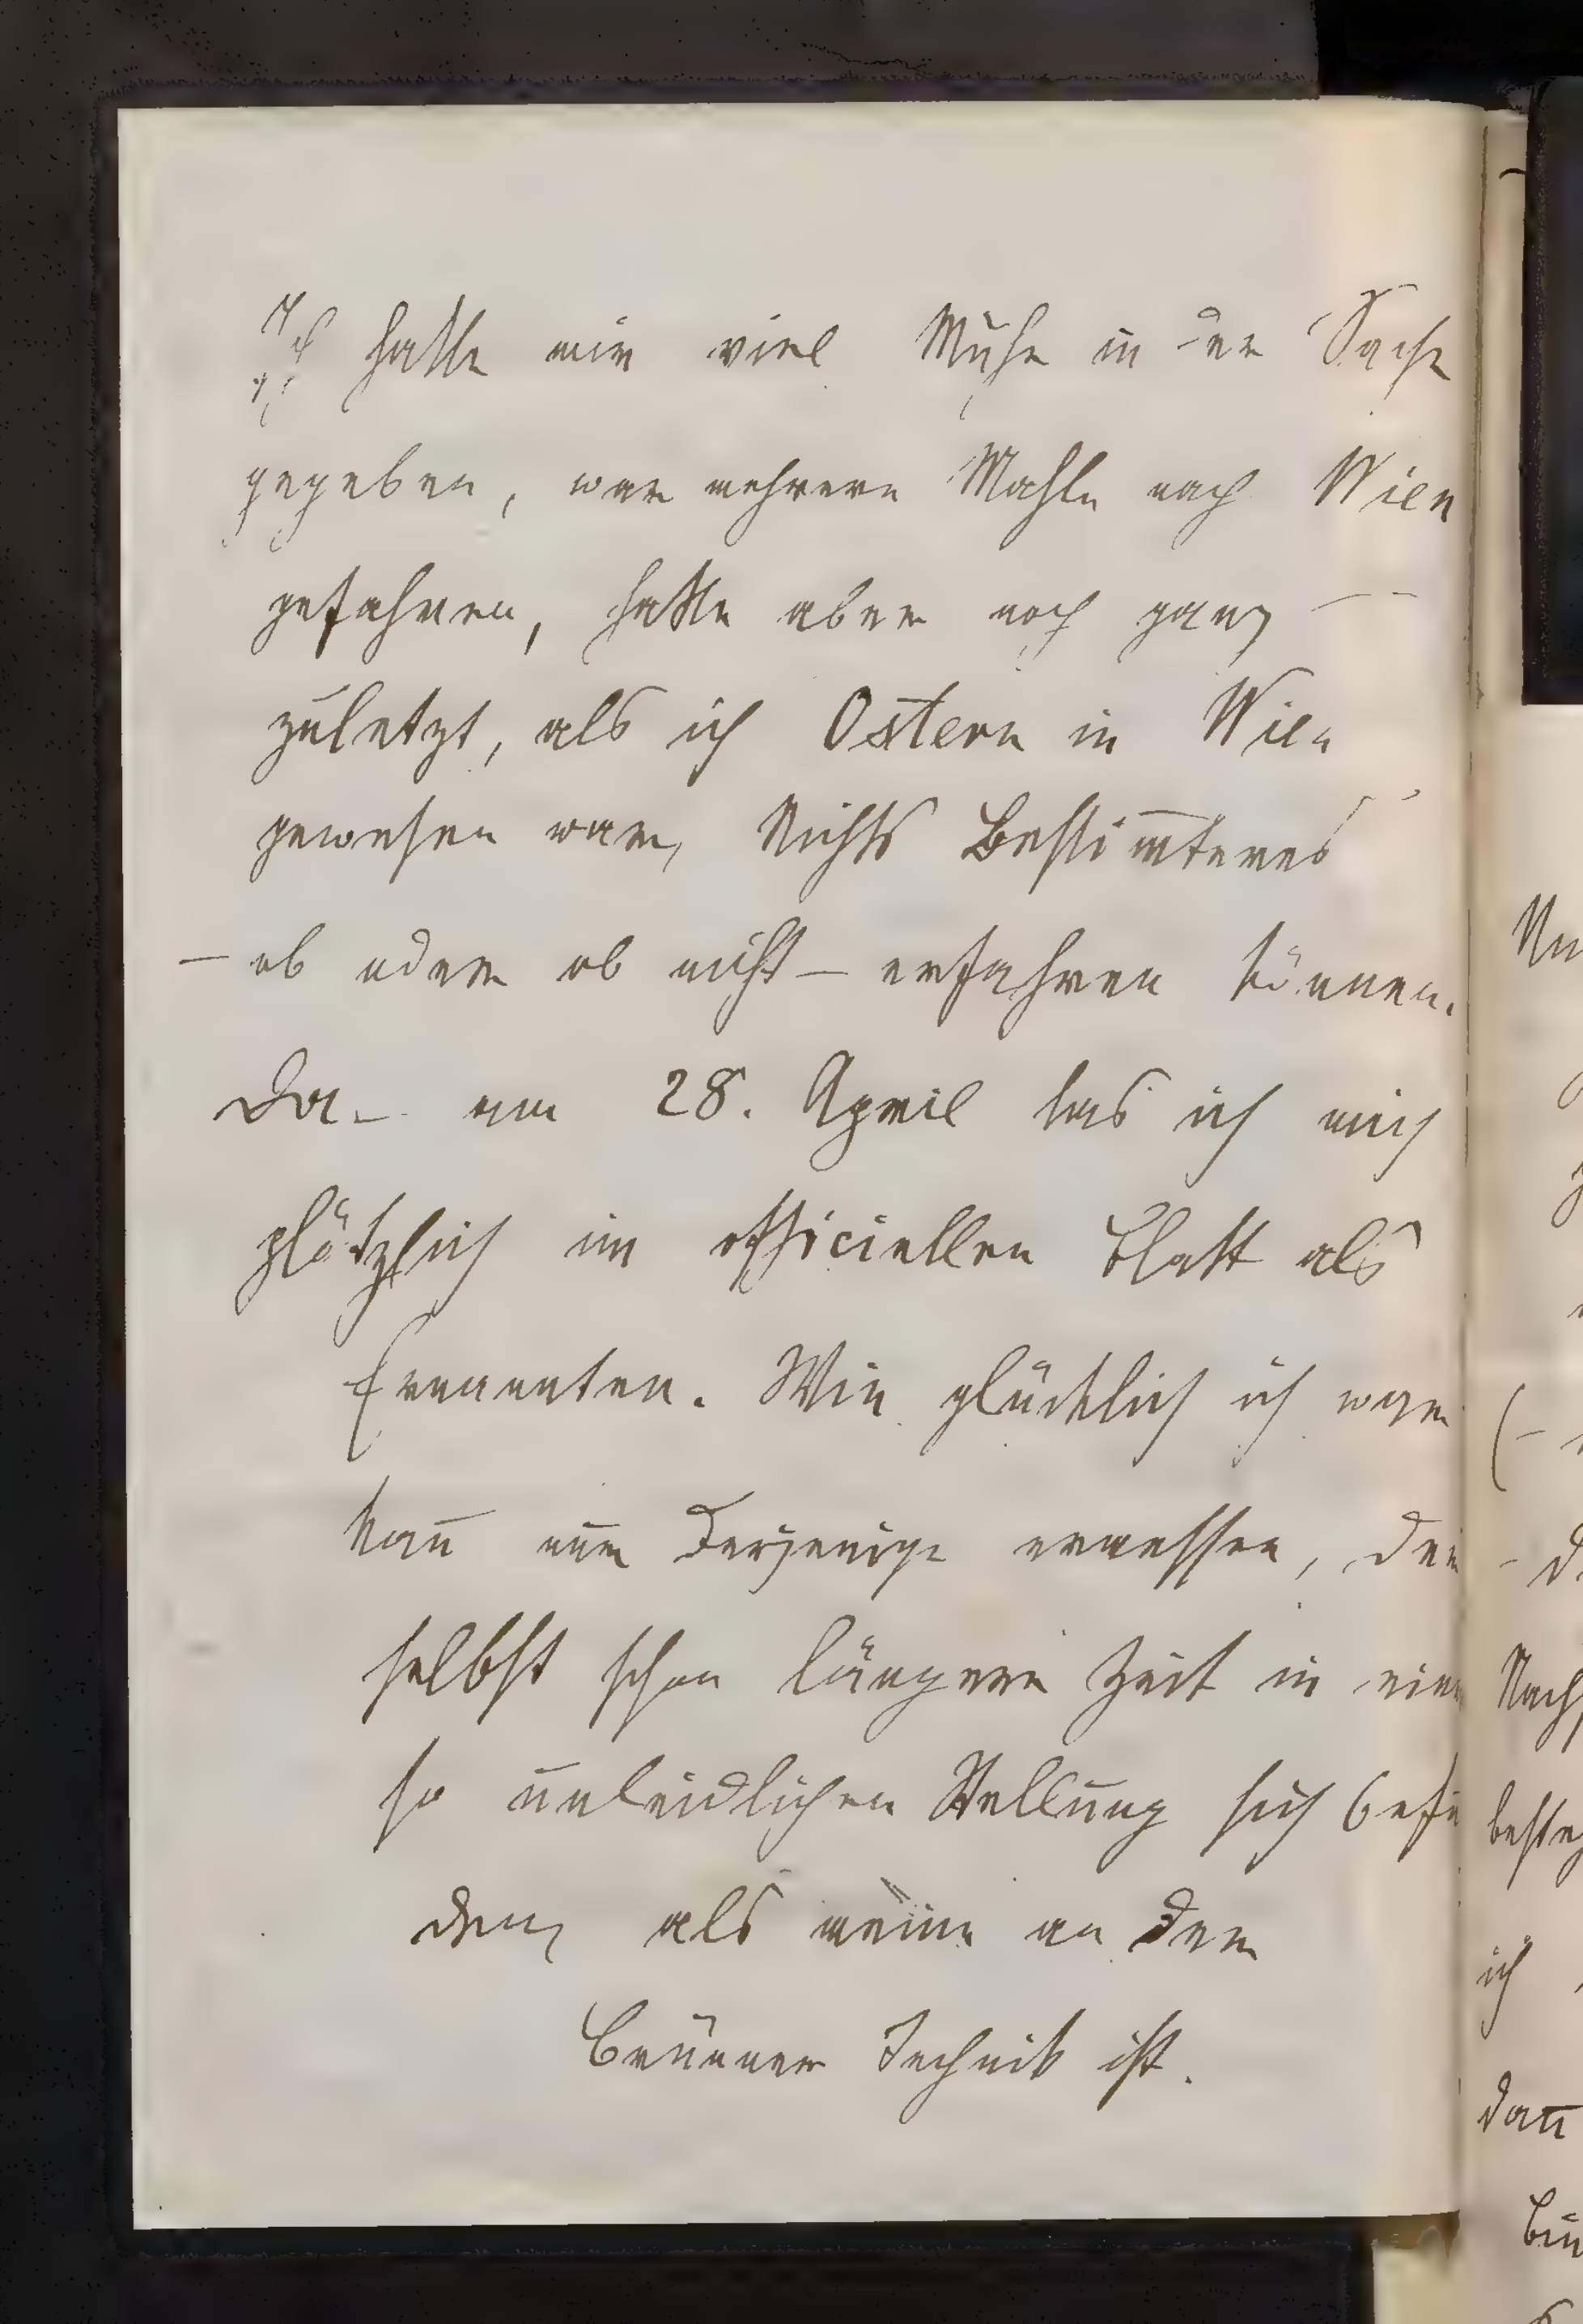 Ich hatte mir viel Mühe in der Sache
gegeben, war mehrere Mahle nach Wien
gefahren, hatte aber noch ganz
zuletzt, als ich Ostern in Wien
gewesen war, Nichts Bestim̅teres
– ob oder ob nicht – erfahren können.
Da – am 28. April las ich mich
plötzlich im officiellen Blatt als
Ernannten. Wie glücklich ich war
kan̅ nur Derjenige ermessen, der
selbst schon längere Zeit in einer
so unleidlichen Stellung sich befun
den, als meine an der
Brünner Technik ist.
Nach
ich
dan̅